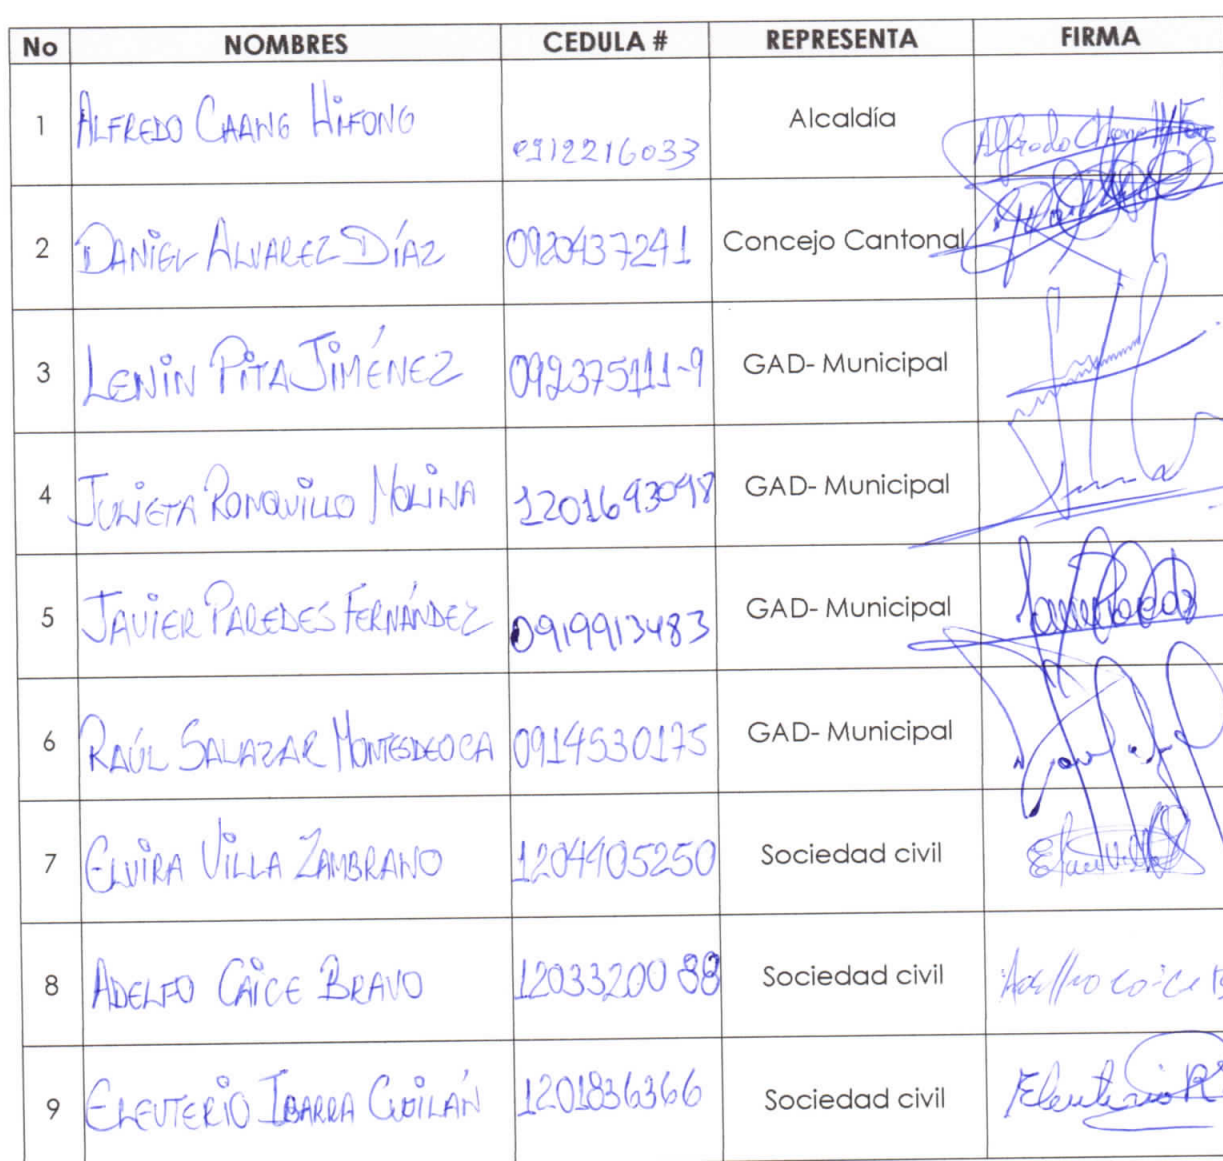 No NOMBRES CEDULA # REPRESENTA FIRMA
1 ALFREDO CHANG HIFONG 0912216033 Alcaldía
2 DANIEL ALVAREZ DÍAZ 0920437241 Concejo Cantonal
3 LENIN PITA JIMÉNEZ 092375111-9 GAD- Municipal
4 JULIETA RONQUILLO MOLINA 1201693098 GAD- Municipal
5 JAVIER PAREDES FERNÁNDEZ 0919913483 GAD- Municipal
6 RAÚL SALAZAR MONTESDEOCA 0914530175 GAD- Municipal
7 ELVIRA VILLA ZAMBRANO 1204405250 Sociedad civil
8 ADELFO CAICE BRAVO 1203320088 Sociedad civil
9 ELEUTERIO IBARRA 1201836366 Sociedad civil